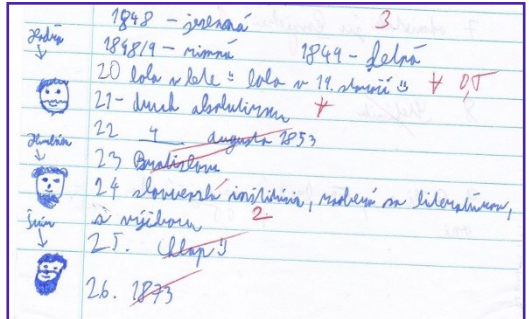 1848 - jesenná 3
Hodža 1848/9 - zimná 1849 - letná
20 bola v lete :) bola v 19. storočí :)
21 - duch absolutizmu
22 4 augusta 1853
Hurban 23 Bratislava
24 slovenská inštitúcia, zaoberá sa literatúrou,
Štúr a výchovou 2.
25. Chlap :)
26. 1873